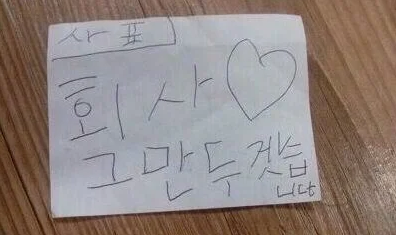 사표
회사♡
그만두겠습
니다